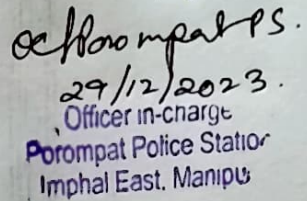 OC/Porompat PS.
29/12/2023.
Officer in-charge
Porompat Police Station
Imphal East, Manipur